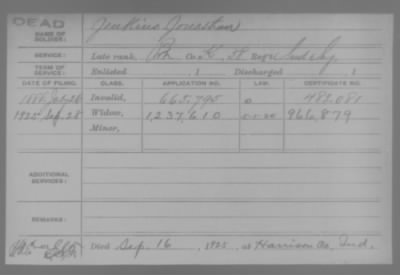 DEAD
NAME OF SOLDIER: Jenkins Jonathan
SERVICE: Late rank, Co. K, 58 Reg't Ind
TERM OF SERVICE: Enlisted , 1 Discharged , 1
DATE OF FILING. CLASS. APPLICATION NO. LAW. CERTIFICATE NO.
1888 Invalid, 665,795 482,081
1925 Sep. 28 Widow, 1,237,610 966,879
Minor,
ADDITIONAL SERVICES:
REMARKS:
Died Sep. 16, 1925, at Harrison Co, Ind.